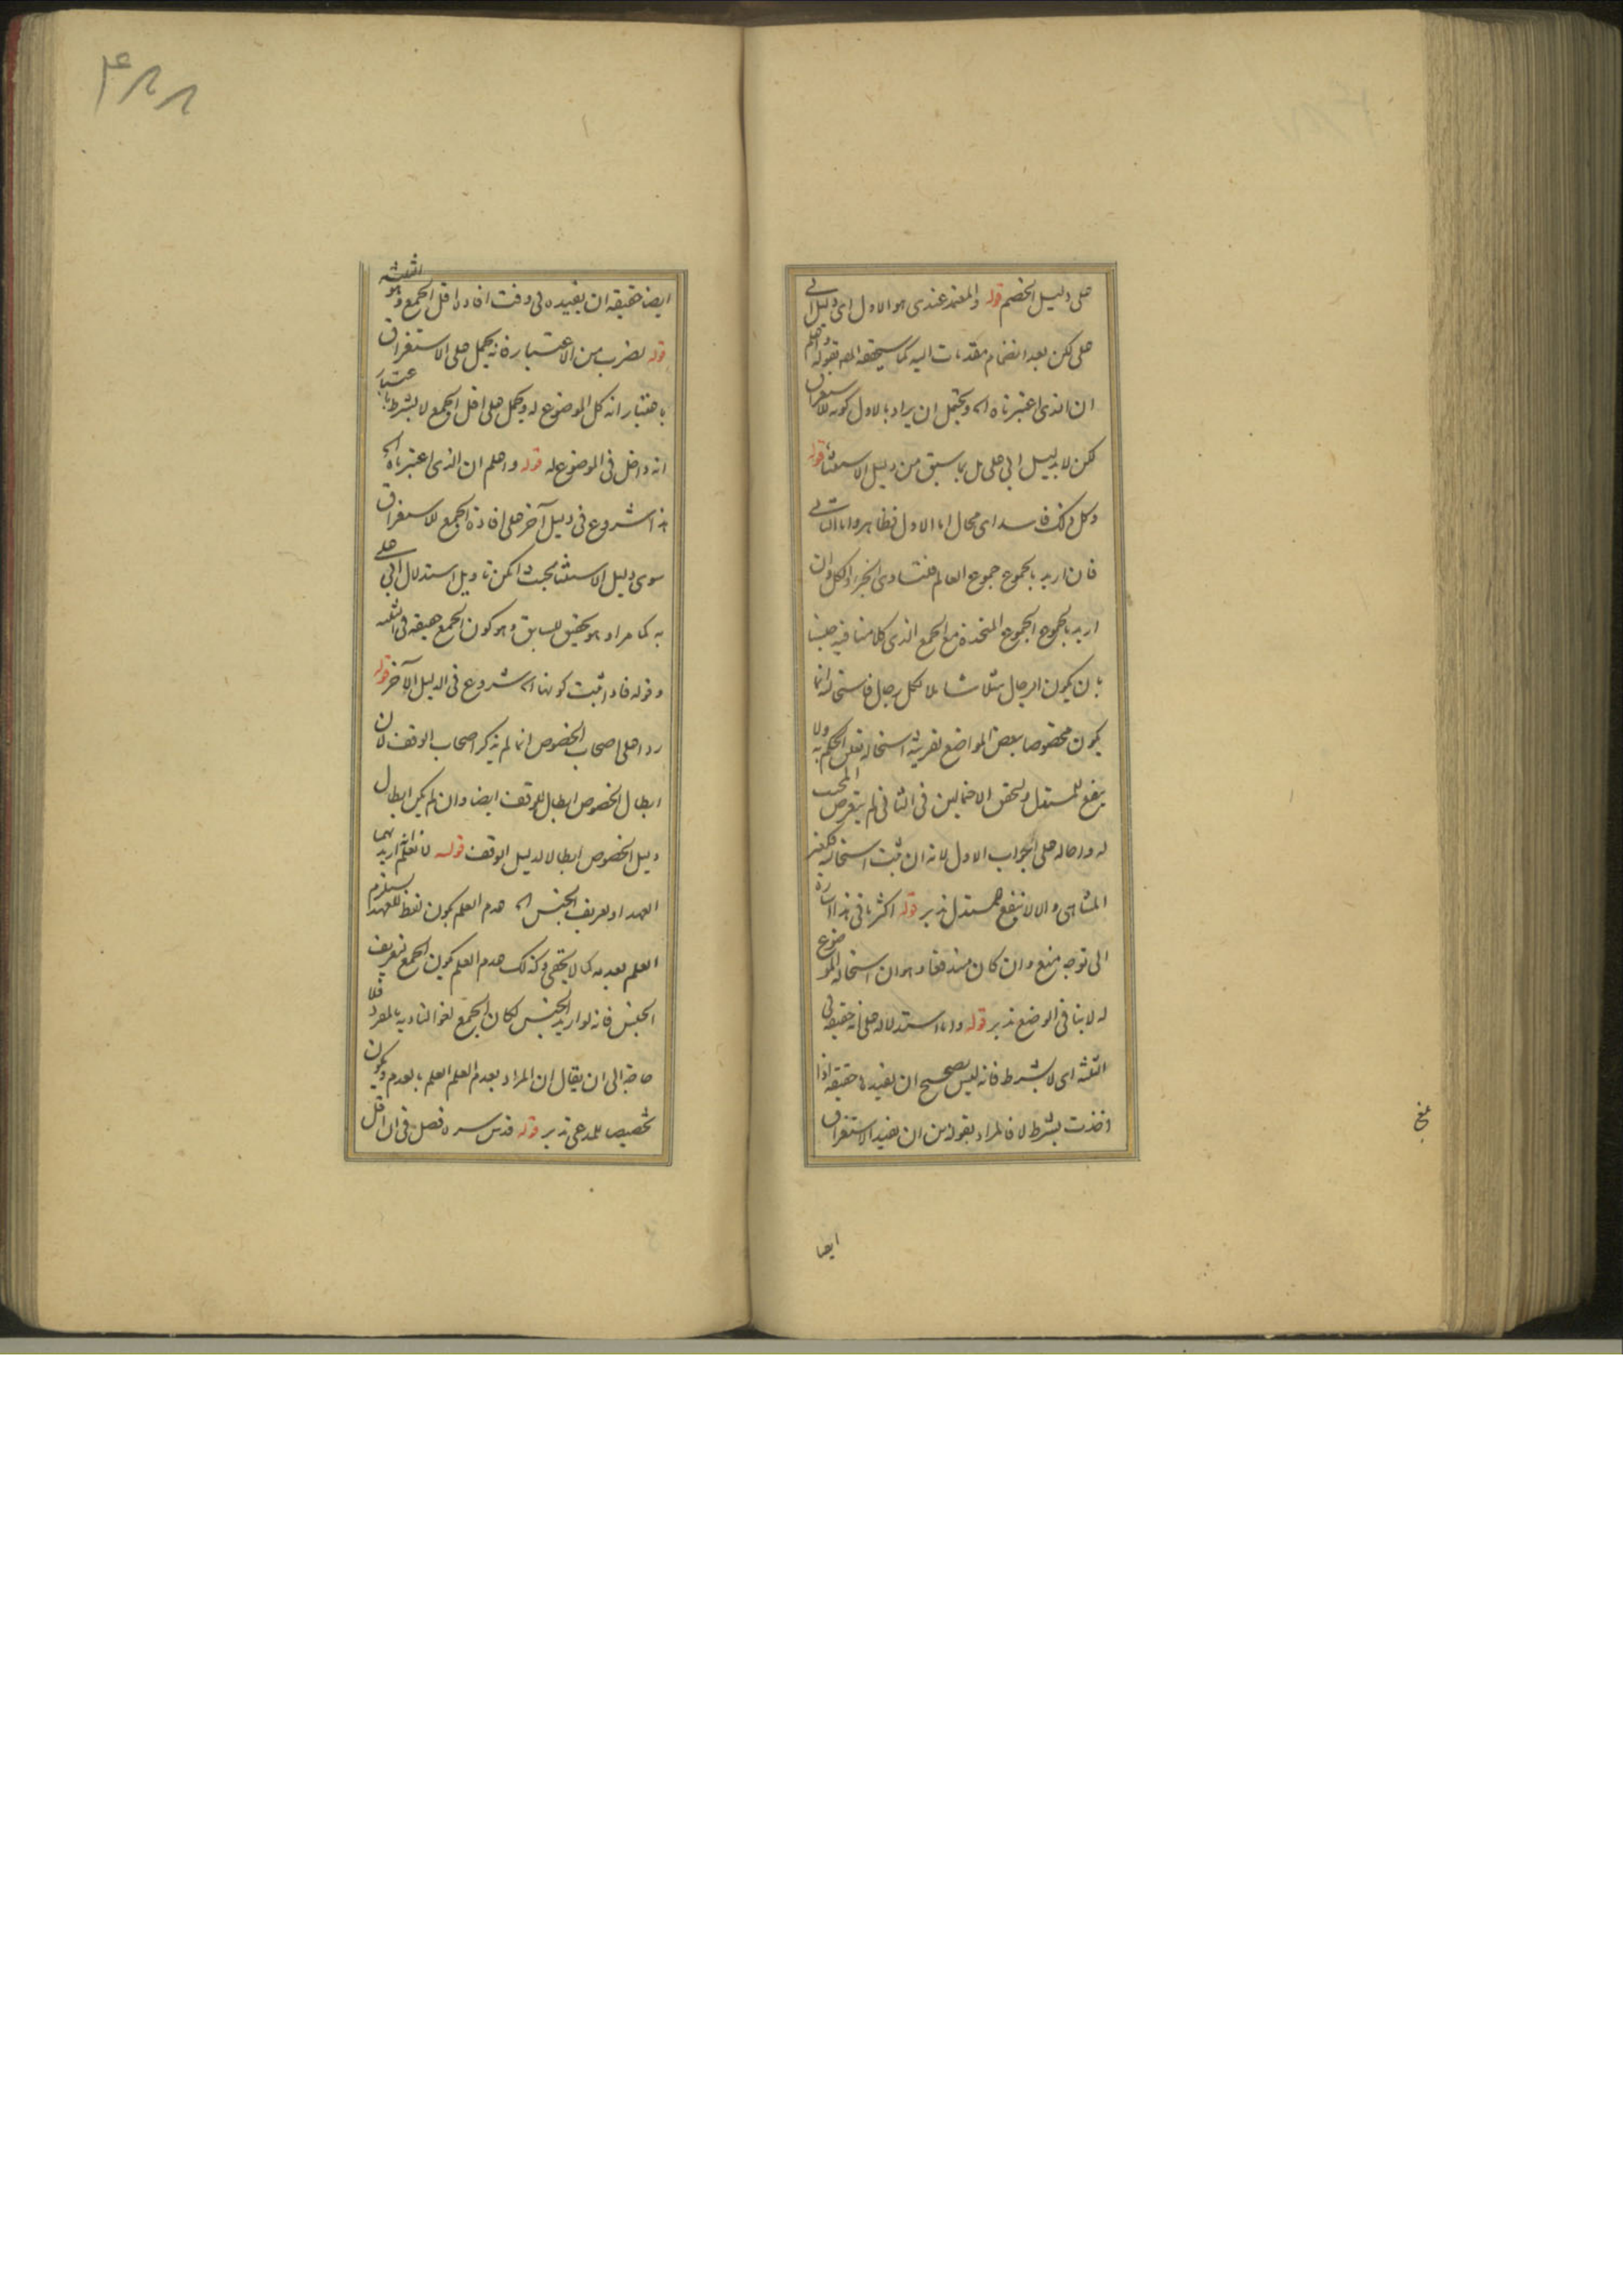 على دليل الخصم قوله والمعتمد عندى هو الاول اى دليل ابى
على لكن بعد انضمام مقدمات اليه كما سيحققه المص بقوله واعلم
ان الذى اعتبرناه اه ويحتمل ان يراد بالاول كونه للاستغراق
لكن لا بدليل ابى على بل بما سبق من دليل الاستثناء قوله
وكل ذلك فاسد اى محال اما الاول فظاهر واما الثانى
فان اريد بالجموع جموع العالم فلتساوى الجزء والكل وان
اريد بالجموع الجموع المتخذة مع الجمع الذى كلامنا فيه جنسا
بان يكون الرجال مثلا شاملا لكل رجال فاستحالته انما
يكون مخصوصا ببعض المواضع بقرينة استحالة تعلق الحكم به ولا
ينفع للمستدل ولتحقق الاحتمالين فى الثانى لم يتعرض المجيب
له واحاله على الجواب الاول لانه ان ثبت استحالته فكغير
المتناهى والا لا ينفع للمستدل تدبر قوله اكثر ما فى هذا اشارة
الى توجه منع وان كان مندفعا وهو ان استحالة الموضوع
له لا ينافى الوضع تدبر قوله واما استدلاله على انه حقيقة فى
الثلثة اى لا بشرط فانه ليس بصحيح ان يفيده حقيقة اذا
اخذت بشرط لا فالمراد بقوله من ان يفيد الاستغراق
ايضا
ايضا حقيقة ان يفيده فى وقت افاده اقل الجمع وهو الثلثة
قوله بضرب من الاعتبار فانه يحمل على الاستغراق
باعتبار انه كل الموضوع له ويحمل على اقل الجمع لا بشرط باعتبار
انه داخل فى الموضوع له قوله واعلم ان الذى اعتبرناه اه
هذا شروع فى دليل آخر على افادة الجمع للاستغراق
سوى دليل الاستثناء بحيث امكن تاويل استدلال ابى على
به كما مر او هو تحقيق للسابق وهو كون الجمع حقيقة فى الثلثة
وقوله فاذا ثبت كونها اه شروع فى الدليل الآخر قوله
ردا على اصحاب الخصوص انما لم يذكر اصحاب الوقف لان
ابطال الخصوص ابطال للوقف ايضا وان لم يكن ابطال
دليل الخصوص ابطالا لدليل الوقف قوله لا نعلم انه اريد بهما
العهد او تعريف الجنس اه عدم العلم بكون لفظ للعهد يستلزم
العلم بعدمه كما لا يخفى وكذلك عدم العلم بكون الجمع لتعريف
الجنس فانه لو اريد الجنس لكان الجمع لغوا لتاديه بالمفرد فلا
حاجة الى ان يقال ان المراد بعدم العلم العلم بالعدم ويكون
تخصيصا للمدعى تدبر قوله قدس سره فصل فى ان اقل